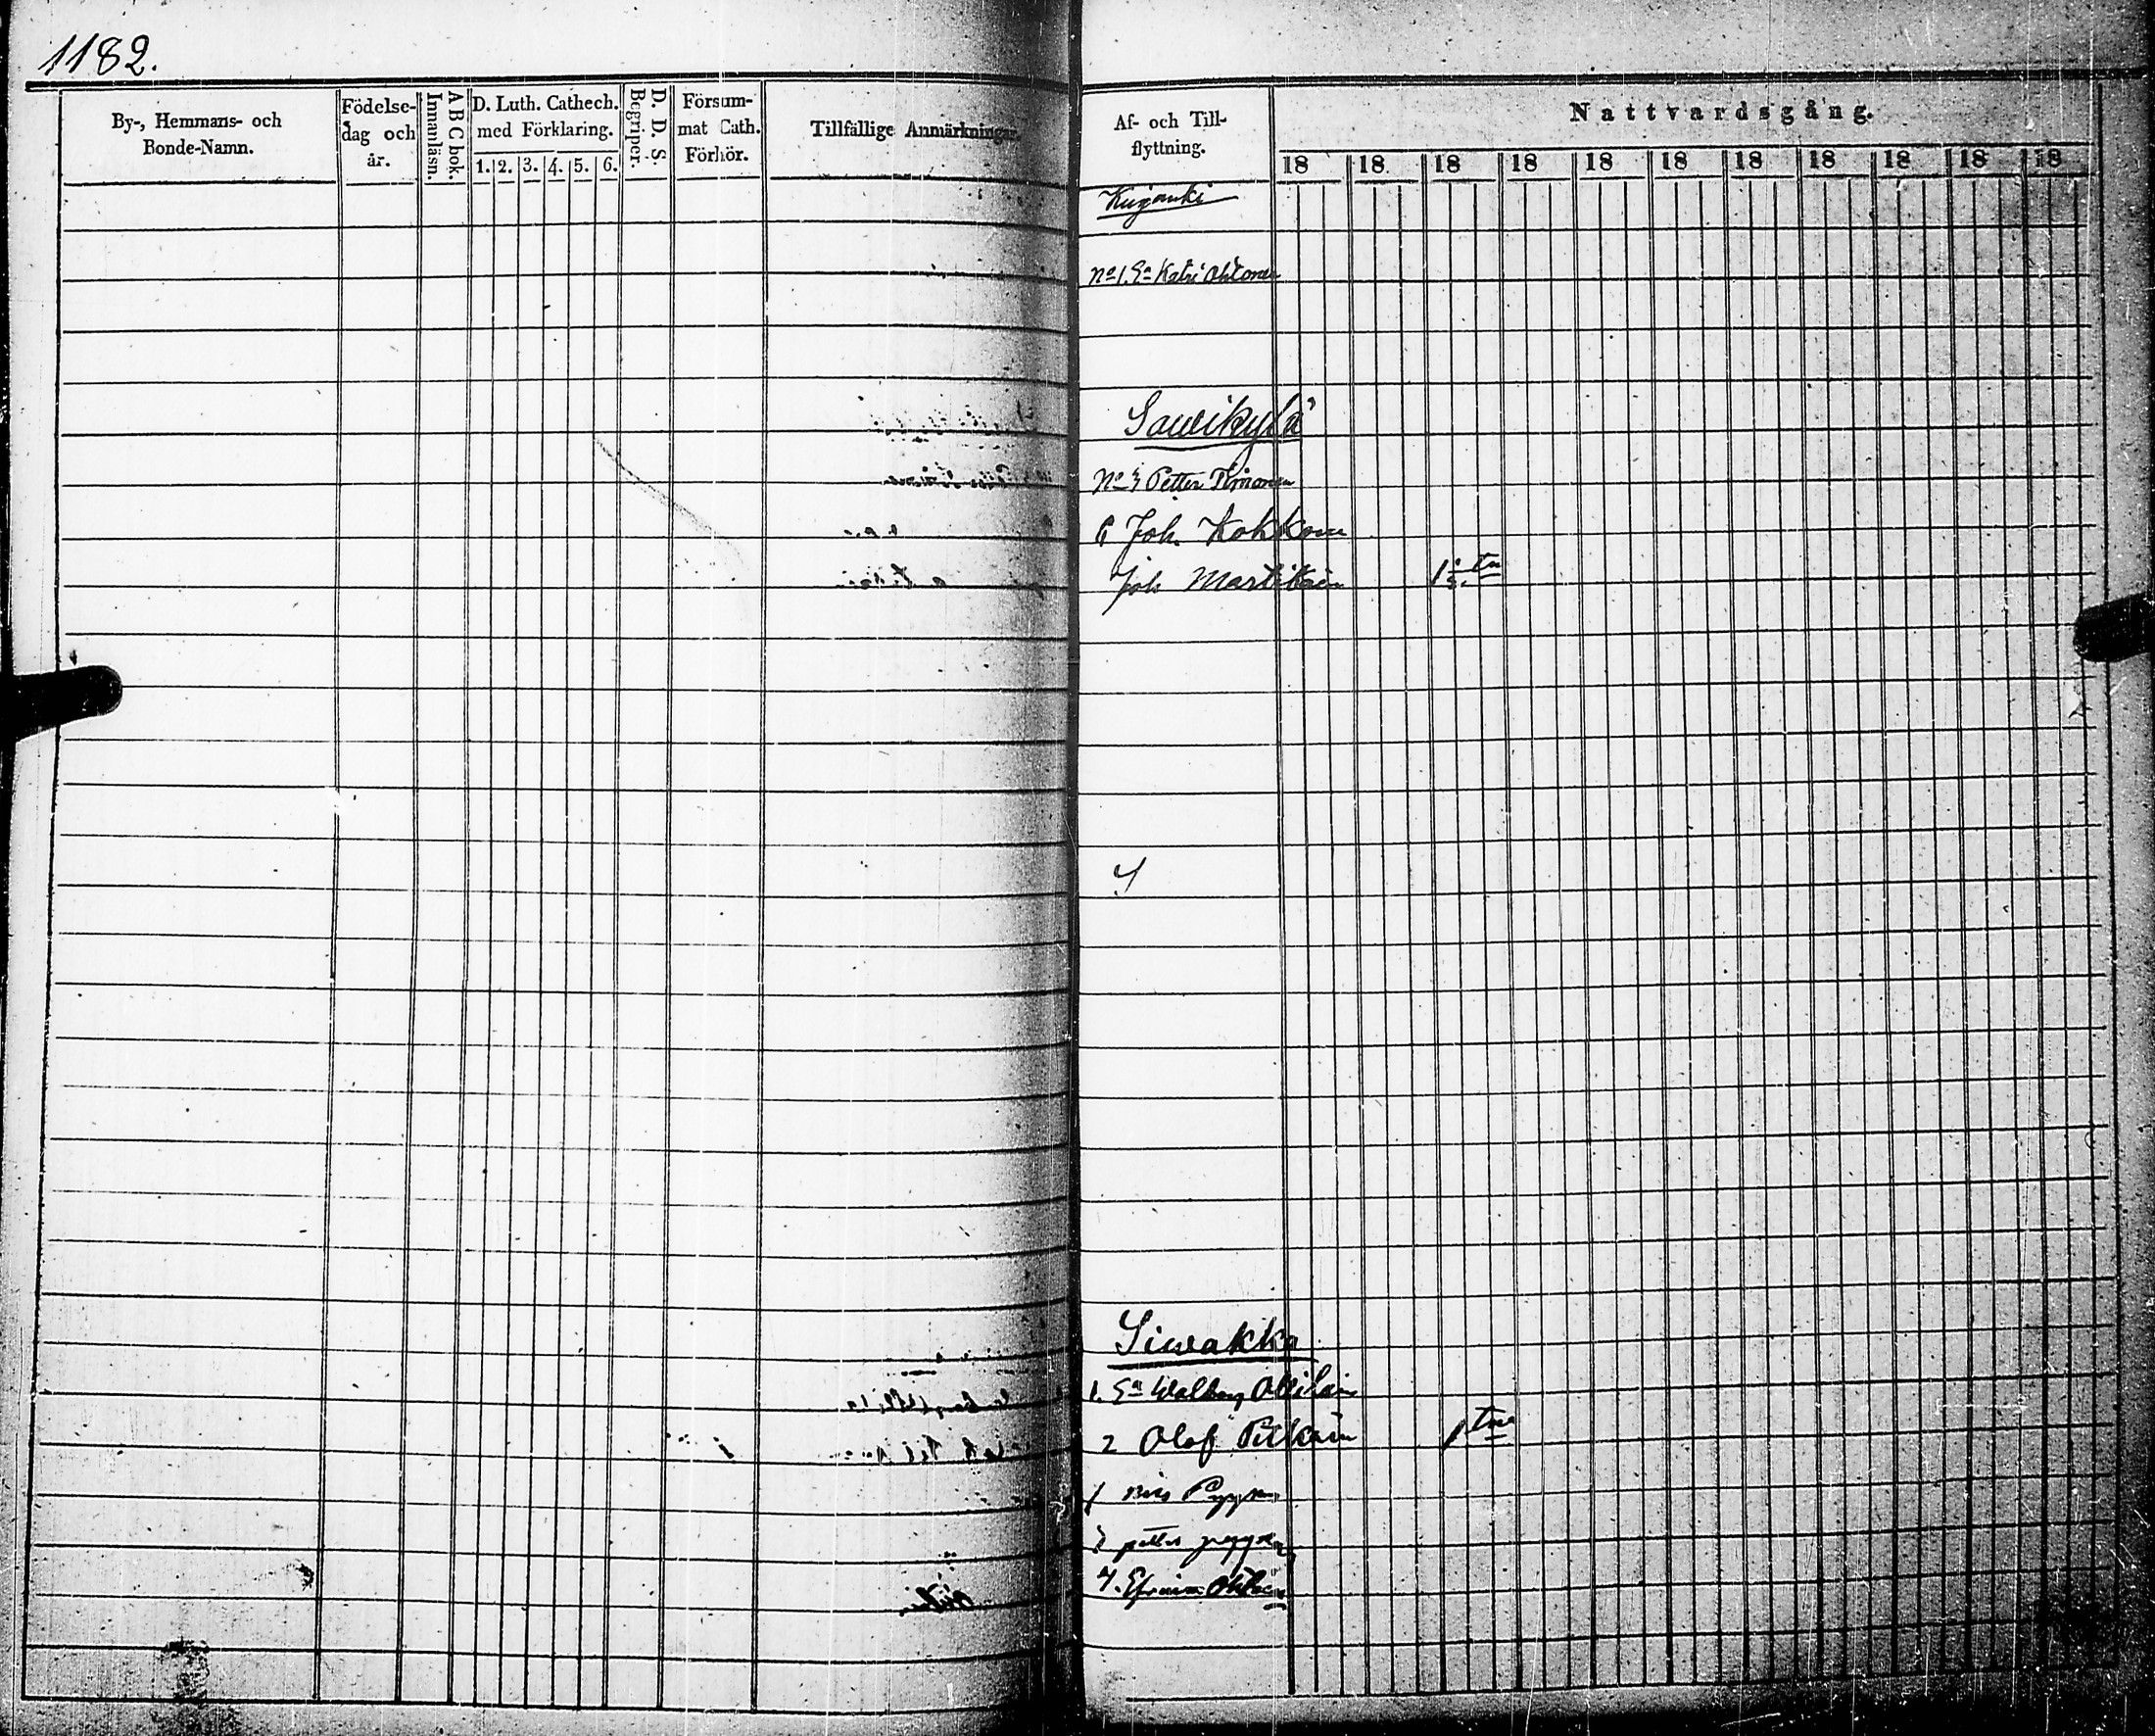 1182.
By-, Hemmans- och
Bonde-Namn.
Födelse-
dag och
år.
A B C bok.
Innanläsn.
D. Luth. Cathech.
med Förklaring.
1. 2. 3. 4. 5. 6.
D. D. S.
Begriper.
Försum-
mat Cath.
Förhör.
Tillfällige Anmärkningar.
Af- och Till-
flyttning.
Nattvardsgång.
18 18 18 18 18 18 18 18 18 18 18
No 1. Ea Katri Ohtonen
Sawikylä
Petter Timonen
6 Joh. Kokkone
Joh Martikain
Siwakka
1. Ea Walborg
2 Olof Pitkäin 1 tn
Petter
4. Efraim